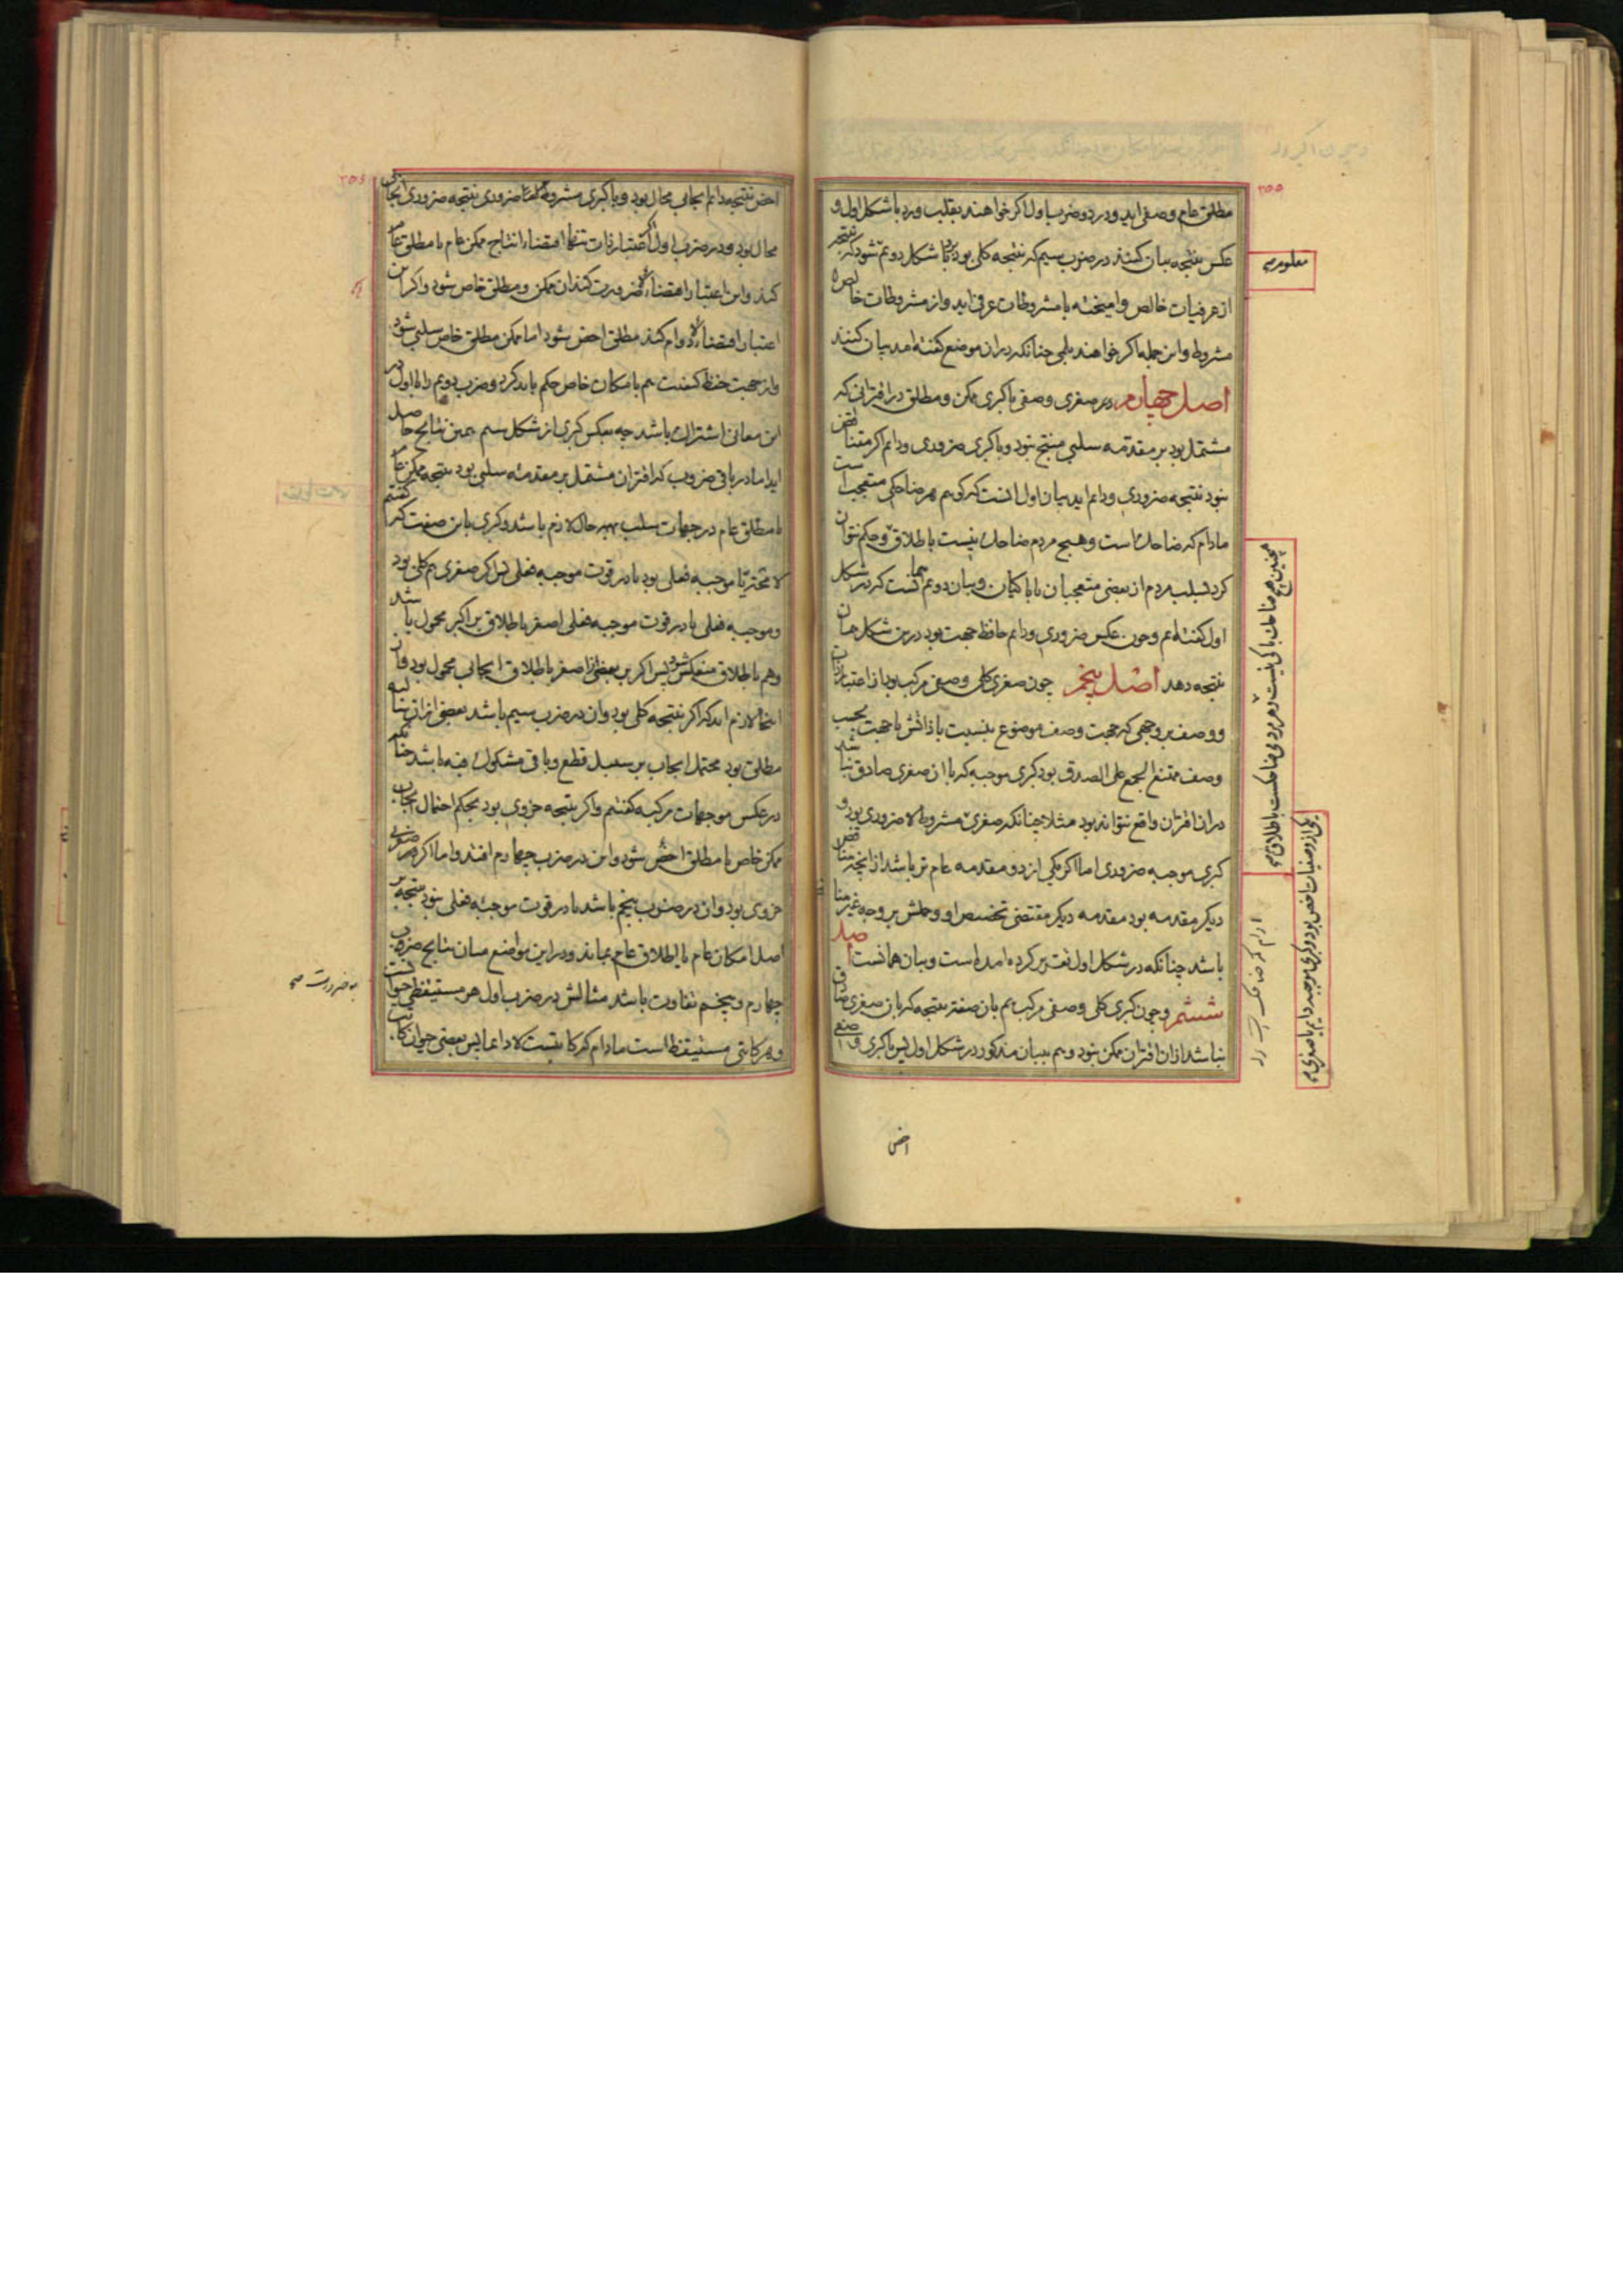 ۲۵۵
مطلق عام وصفی اید و در دو ضرب اول اکر خواهند بقلب و رد با شکل اول و
عکس نتیجه بیان کنند در ضرب سیم که نتیجه کلی بود با شکل دویم شود که نتیجه
از عرفیات خالص و امیخته با مشروطات عرفی اید و از مشروطات خالص
مشروط و این جمله اکر خواهند بلمی چنانکه در ان موضع کفته امد بیان کنند
اصل چهارم در صغری وصفی با کبری ممکن و مطلق در اقترانی که
مشتمل بود بر مقدمه سلبی منتج نبود و با کبری ضروری و دایم اکر متناقض
نبود نتیجه ضروری و دایم اید بیان اول انست که کوییم هر ضاحکی متعجب است
مادام که ضاحک است و هیچ مردم ضاحک نیست باطلاق و حکم نتوان
کرد بسلب مردم از بعضی متعجبان یا باکیان و بیان دویم همانست که در شکل
اول کفته ایم و چون عکس ضروری و دایم حافظ جهت بود درین شکل همان
نتیجه دهد اصل پنجم چون صغری کلی وصفی مرکب بود از اعتبار ذات
و وصف بر وجهی که جهت وصف موضوع بنسبت با ذاتش با جهت بحسب
وصف ممتنع الجمع علی الصدق بود کبری موجبه که با ان صغری صادق نباشد
در ان اقتران واقع نتواند بود مثلا چنانکه صغری مشروط لا ضروری بود و
کبری موجبه ضروری اما اکر یکی از دو مقدمه عام تر باشد از انچه مناقض
دیکر مقدمه بود مقدمه دیکر مقتضی تخصیص او و حملش بر وجه غیر مناقض
باشد چنانکه در شکل اول تقریر کرده امده است و بیان همانست اصل
ششم و چون کبری کلی وصفی مرکب هم بان صفت نتیجه که بان صغری صادق
نباشد ازان اقتران ممکن نبود و هم ببیان مذکور در شکل اول پس با کبری وصفی
معلوم
همچنین هیچ ضاحک باکی نیست و هر مردمی ضاحکست باطلاق
اخص
۲۵۶
اخص نتیجه دایم ایجابی محال بود و با کبری مشروطه لا ضروری نتیجه ضروری ایجابی
محال بود و در ضرب اول اکر اعتبار ذات تنها اقتضاء انتاج ممکن عام یا مطلق عام
کند و این اعتبار اقتضاء لا ضرورت کند ان ممکن و مطلق خاص شود و اکر این
اعتبار اقتضاء لا دوام کند مطلق اخص شود اما ممکن مطلق خاص سلبی شود
و از جهت حفظ کیفیت هم بامکان خاص حکم باید کرد و ضرب دویم را با اول در
این معانی اشتراک باشد چه بعکس کبری از شکل سیم همین نتایج حاصل
اید اما در باقی ضروب که اقتران مشتمل بر مقدمه سلبی بود نتیجه ممکن عام
یا مطلق عام در جهات سلب بهر حال لازم باشد و کبری باین صفت که کفتیم
لا محاله یا موجبه فعلی بود یا در قوت موجبه فعلی پس اکر صغری هم کلی بود
و موجبه فعلی یا در قوت موجبه فعلی اصغر باطلاق بر اکبر محمول باشد
و هم باطلاق منعکس شود پس اکبر بر بعضی از اصغر باطلاق ایجابی محمول بود و ان
اینجا لازم اید که اکر نتیجه کلی بود و ان در ضرب سیم باشد بعضی از ان سالبه
مطلق بود محتمل ایجاب بر سبیل قطع و باقی مشکوک فیه باشد چنانکه
در عکس موجهات مرکبه کفتیم و اکر نتیجه جزوی بود بحکم احتمال ایجاب
ممکن خاص یا مطلق اخص شود و این در ضرب چهارم افتد و اما اکر صغری
جزوی بود و ان در ضرب پنجم باشد یا در قوت موجبه فعلی نبود نتیجه بر
اصل امکان عام یا اطلاق عام بماند و در این مواضع میان نتایج ضرب
چهارم و پنجم تفاوت باشد مثالش در ضرب اول هر مستیقظی حیوانست
و هر کاتبی مستیقظ است مادام که کاتبست لا دایما پس بعضی حیوان کاتب
بضرورت صح